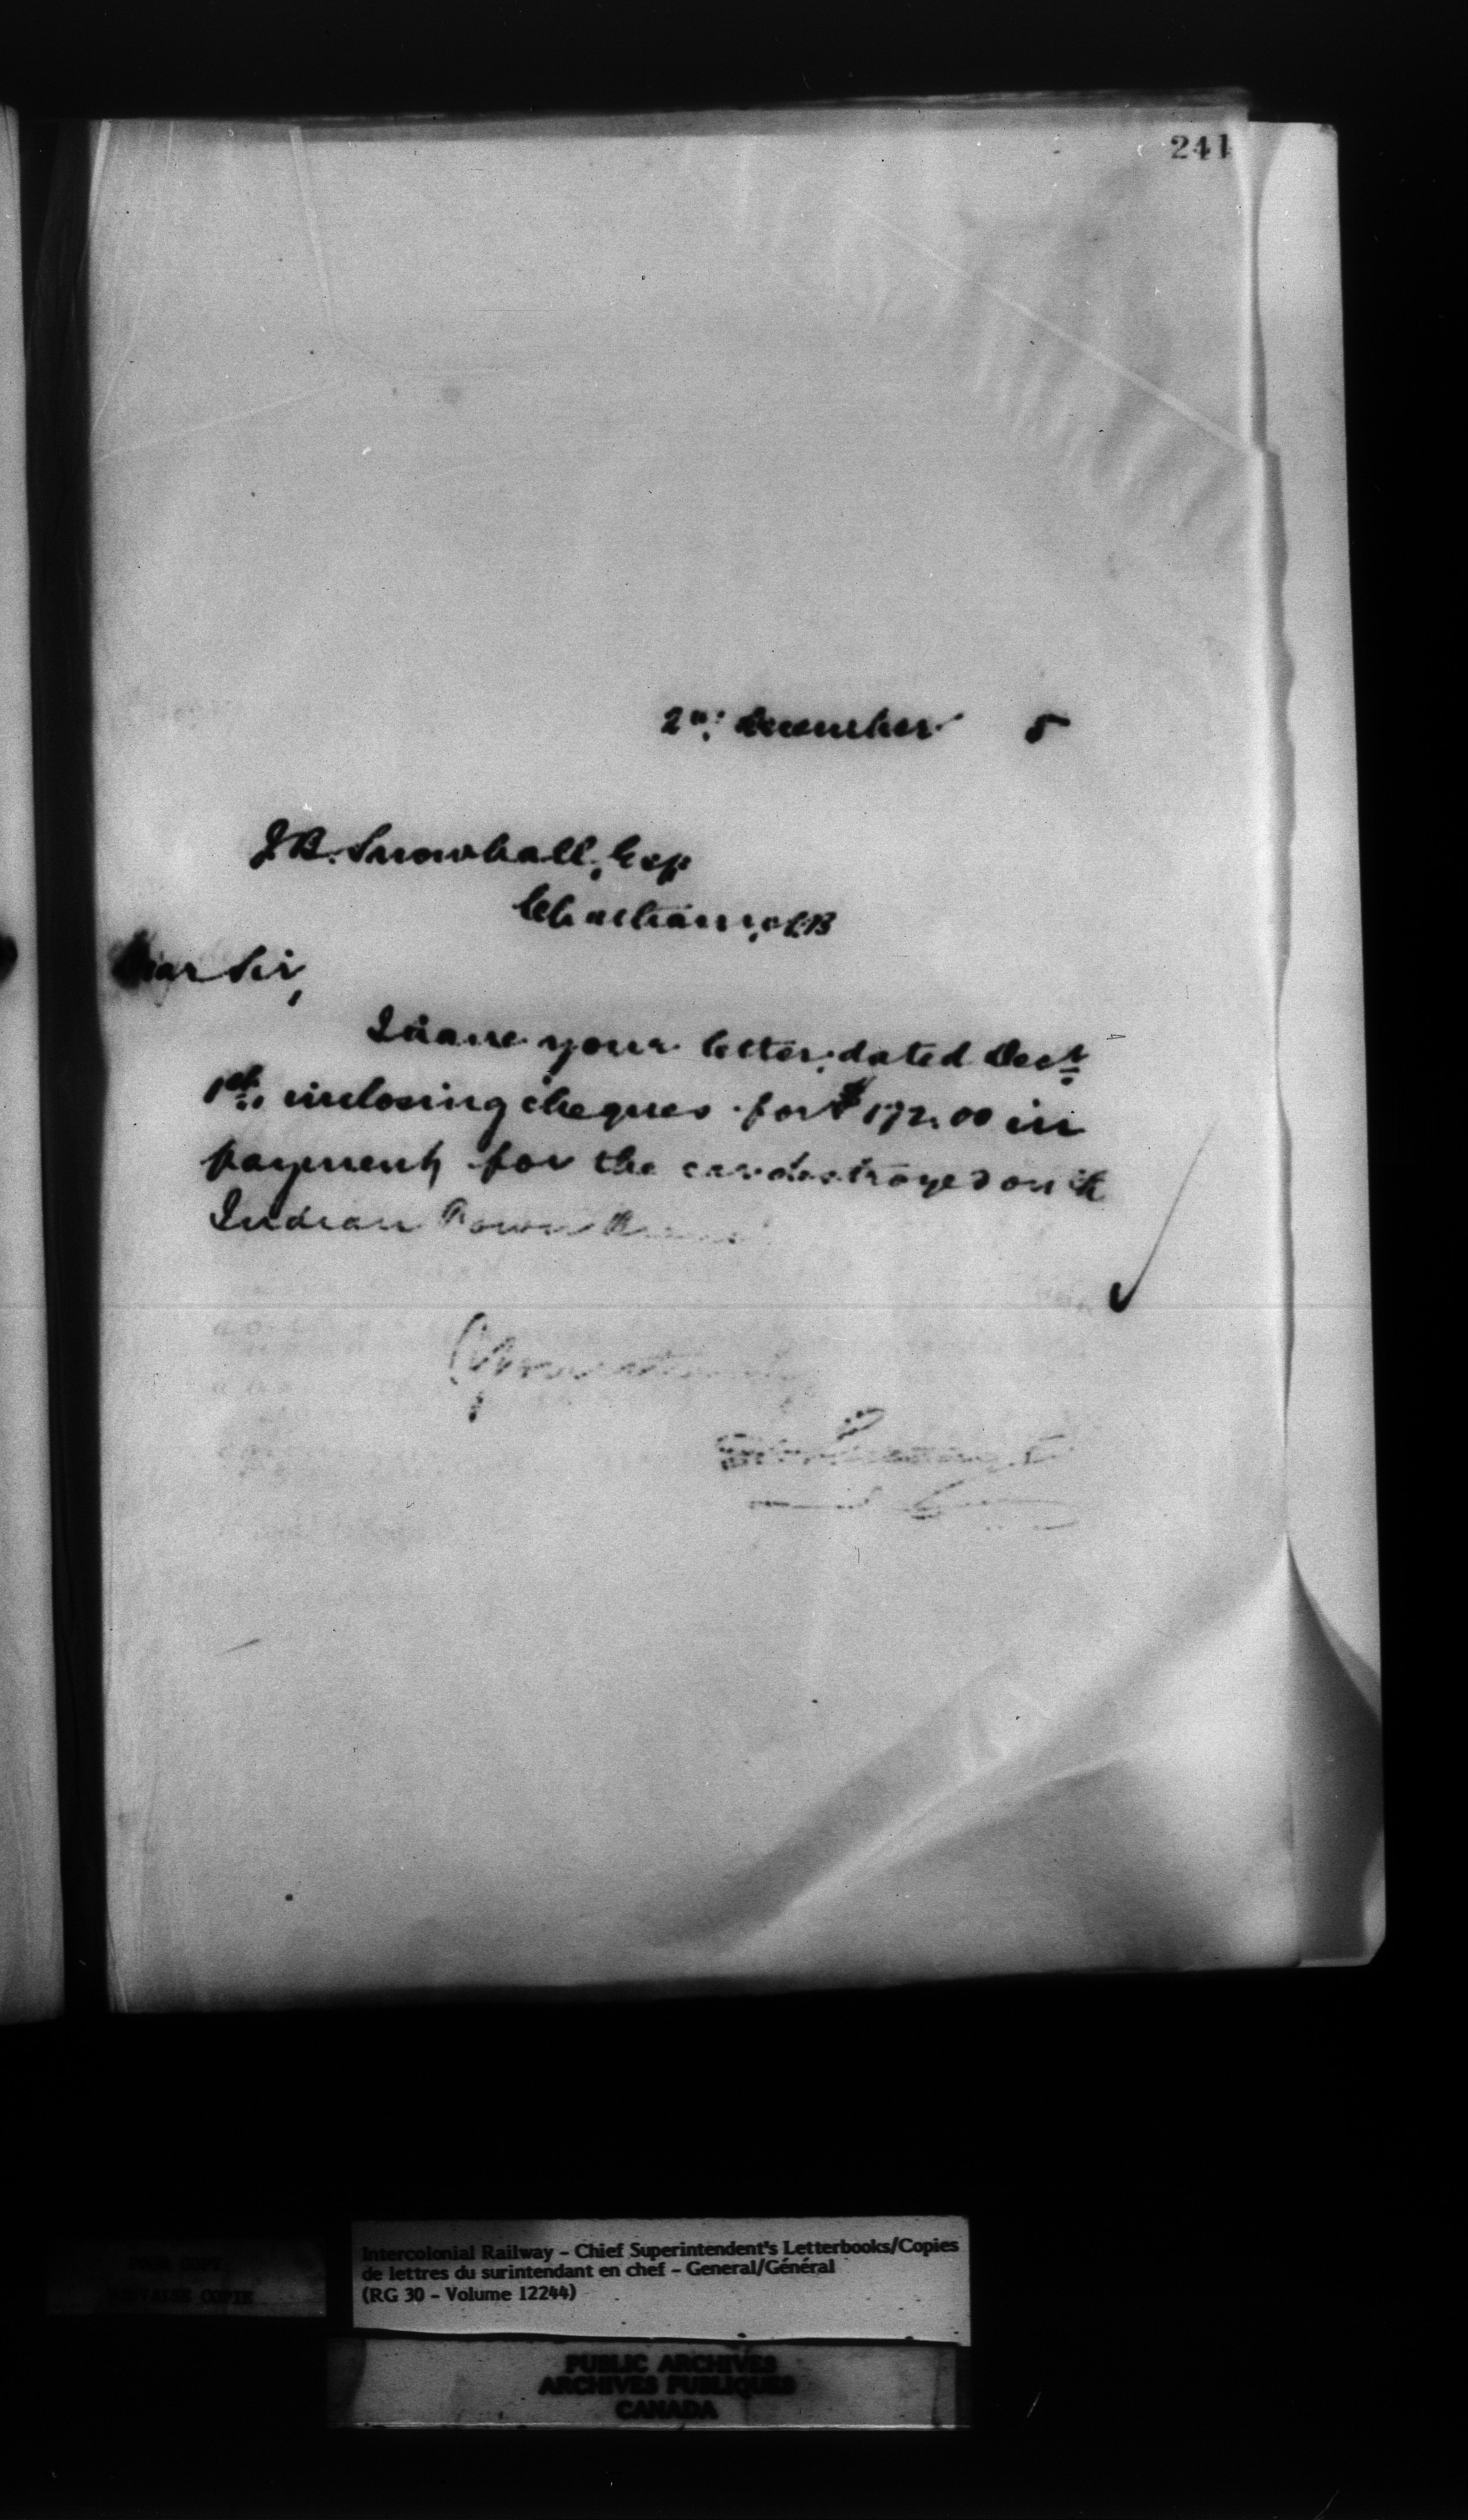 241
2nd December 5
J.B. Snowball, Esq
Chatham, N.B
Dear Sir,
I have your letter, dated Decr
1st, inclosing cheques for $172.00 in
payment for the car destroyed on the
Indian Town
Yours
Intercolonial Railway - Chief Superintendent's Letterbooks/Copies
de lettres du surintendant en chef - General/Général
(RG 30 - Volume 12244)
POOR COPY
MAUVAISE COPIE
PUBLIC ARCHIVES
ARCHIVES PUBLIQUES
CANADA